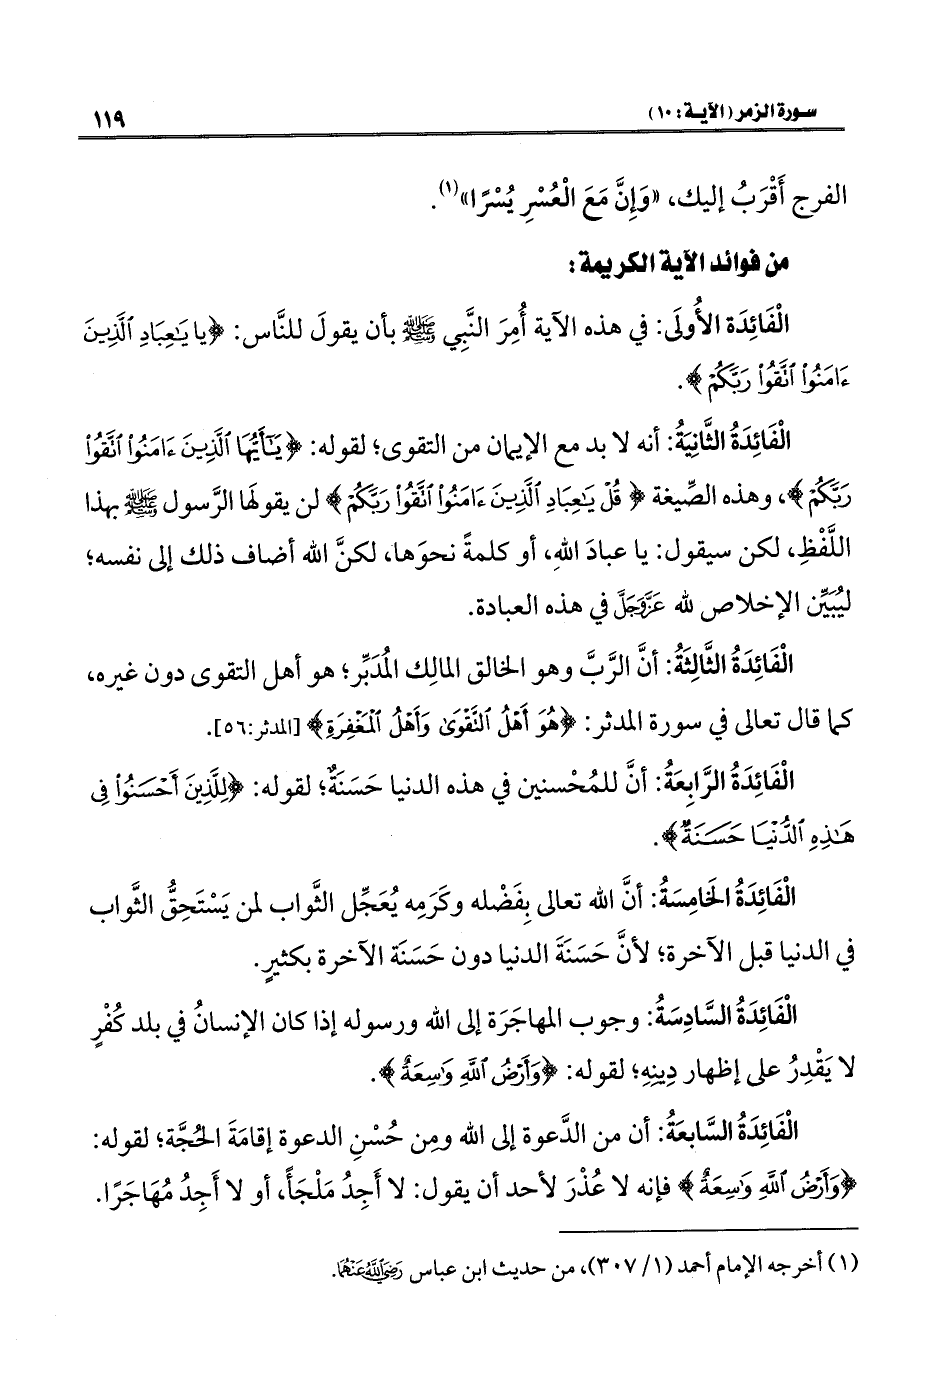 سورة الزمر (الآية: ١٠)
١١٩
الفرج أَقْرَبُ إليك، «وَإِنَّ مَعَ الْعُسْرِ يُسْرًا»(١).
من فوائد الآية الكريمة:
الْفَائِدَة الأُولَى: في هذه الآية أُمِرَ النَّبِي ﷺ بأن يقولَ للنَّاس: ﴿يا يَٰعِبَادِ ٱلَّذِينَ
ءَامَنُواْ ٱتَّقُواْ رَبَّكُمْ﴾.
الْفَائِدَةُ الثَّانِيَةُ: أنه لا بد مع الإيمان من التقوى؛ لقوله: ﴿يَٰٓأَيُّهَا ٱلَّذِينَ ءَامَنُواْ ٱتَّقُواْ
رَبَّكُمْ﴾، وهذه الصِّيغة ﴿قُلْ يَٰعِبَادِ ٱلَّذِينَ ءَامَنُواْ ٱتَّقُواْ رَبَّكُمْ﴾ لن يقولهَا الرَّسول ﷺ بهذا
اللَّفْظِ، لكن سيقول: يا عبادَ اللهِ، أو كلمةً نحوَها، لكنَّ الله أضاف ذلك إلى نفسه؛
ليُبَيِّن الإخلاص لله عَزَّوَجَلَّ في هذه العبادة.
الْفَائِدَةُ الثَّالِثَةُ: أنَّ الرَّبَّ وهو الخالق المالِك المُدَبِّر؛ هو أهل التقوى دون غيره،
كما قال تعالى في سورة المدثر: ﴿هُوَ أَهْلُ ٱلتَّقْوَىٰ وَأَهْلُ ٱلْمَغْفِرَةِ﴾ [المدثر:٥٦].
الْفَائِدَةُ الرَّابِعَةُ: أنَّ للمُحْسنين في هذه الدنيا حَسَنَةٌ؛ لقوله: ﴿لِلَّذِينَ أَحْسَنُواْ فِى
هَٰذِهِ ٱلدُّنْيَا حَسَنَةٌ﴾.
الْفَائِدَةُ الخَامِسَةُ: أنَّ الله تعالى بِفَضْله وكَرَمِه يُعَجِّل الثَّواب لمن يَسْتَحِقُّ الثَّواب
في الدنيا قبل الآخرة؛ لأنَّ حَسَنَةَ الدنيا دون حَسَنَة الآخرة بكثيرٍ.
الْفَائِدَةُ السَّادِسَةُ: وجوب المهاجَرَة إلى الله ورسوله إذا كان الإنسانُ في بلد كُفْرٍ
لا يَقْدِرُ على إظهار دِينِهِ؛ لقوله: ﴿وَأَرْضُ ٱللَّهِ وَٰسِعَةٌ﴾.
الْفَائِدَةُ السَّابعَةُ: أن من الدَّعوة إلى الله ومِن حُسْنِ الدعوة إقامَةَ الحُجَّة؛ لقوله:
﴿وَأَرْضُ ٱللَّهِ وَٰسِعَةٌ﴾ فإنه لا عُذْرَ لأحد أن يقول: لا أَجِدُ مَلْجَأً، أو لا أَجِدُ مُهَاجَرًا.
(١) أخرجه الإمام أحمد (١/ ٣٠٧)، من حديث ابن عباس رَضِيَ اللَّهُ عَنْهُمَا.